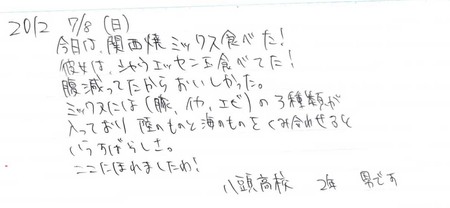 2012 7/8 (日)
今日は、関西焼ミックス食べた!
彼女は、シャウエッセン玉食べてた!
腹減ってたからおいしかった。
ミックスには(豚、イカ、エビ)の3種類が
入っており 陸のものと海のものをくみ合わせると
いうすばらしさ。
ここにほれましたわ!
八頭高校 2年 男です